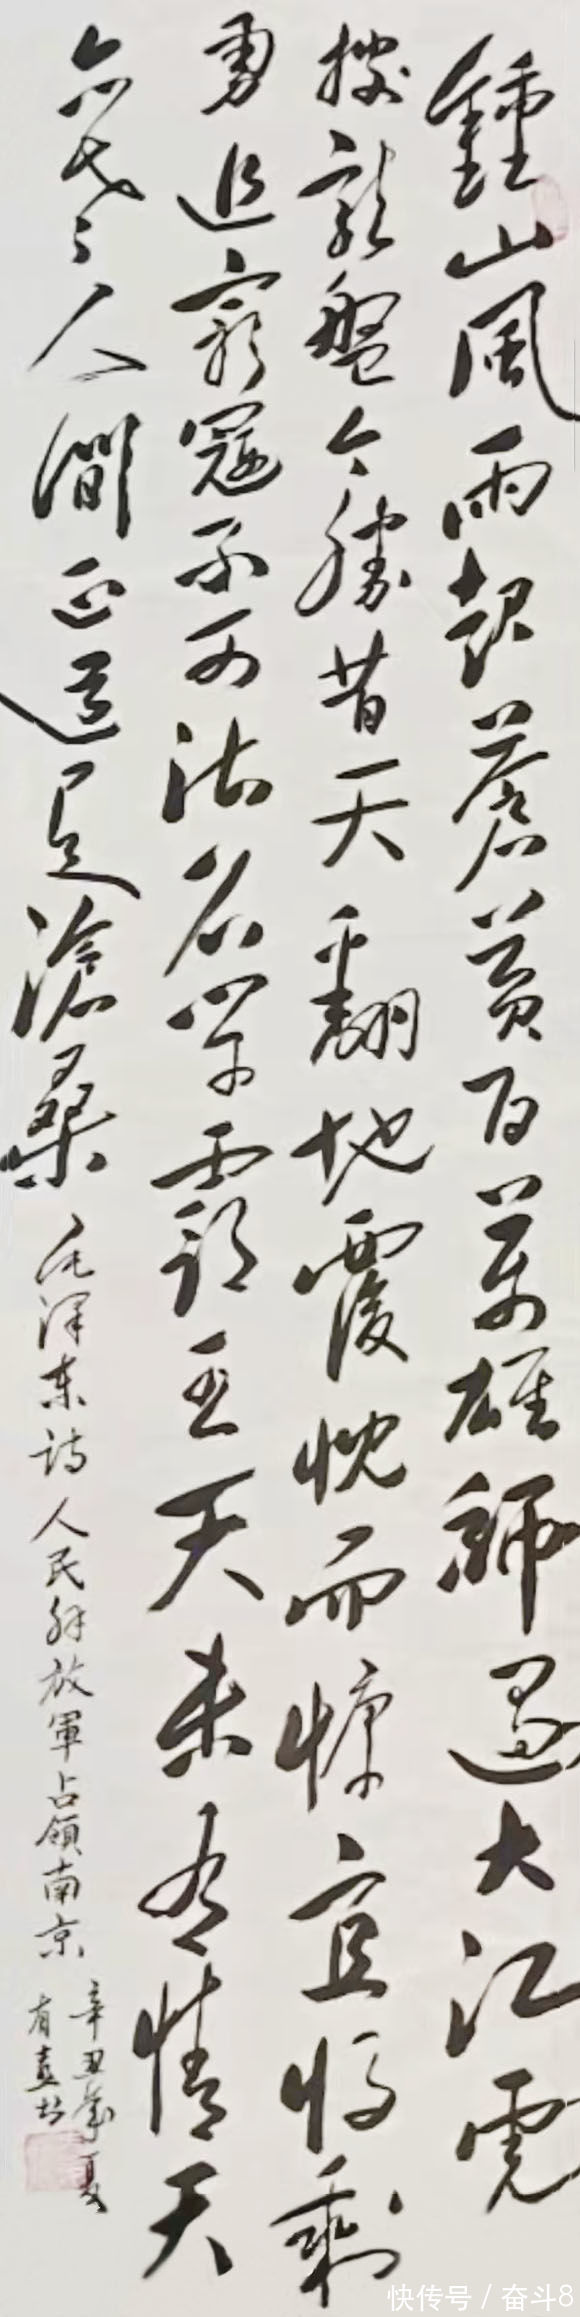 鍾山風雨起蒼黃百萬雄師過大江虎
據龍盤今勝昔天翻地覆慨而慷宜將剩
勇追窮寇不可沽名學霸王天若有情天
亦老人間正道是滄桑 毛澤东诗人民解放軍占領南京
辛丑年夏
有
快传号 / 奋斗8